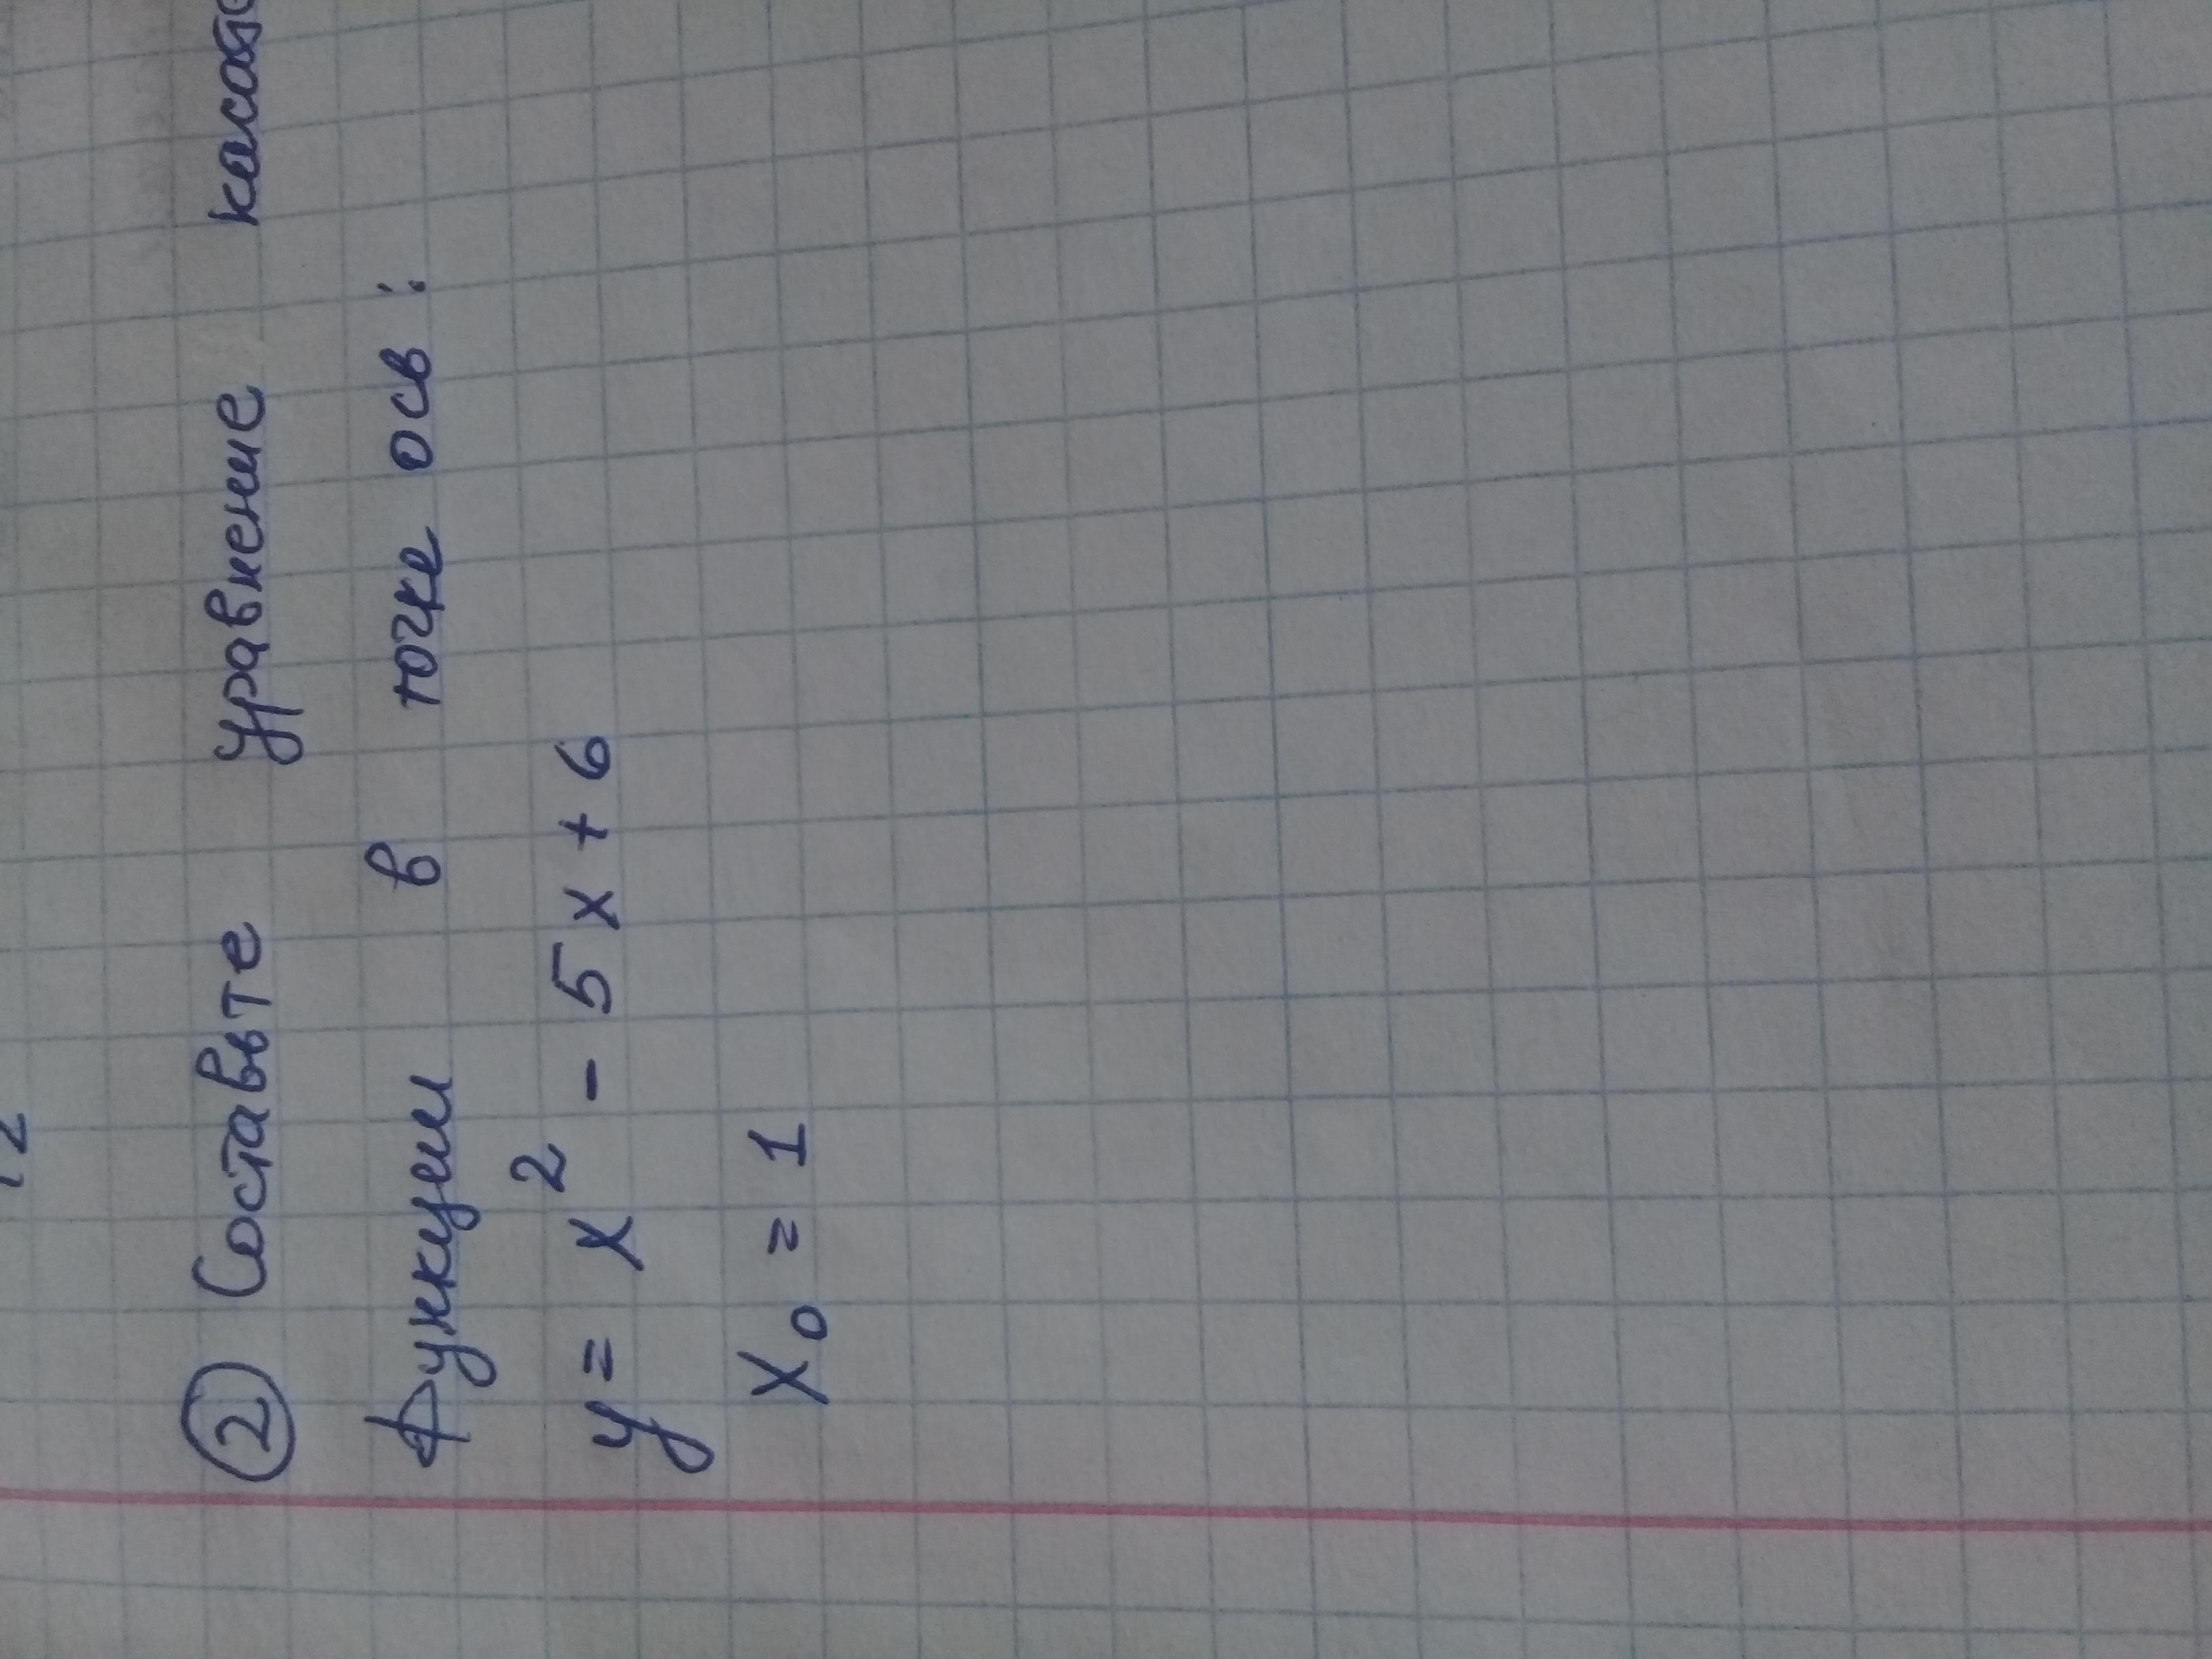 ② Составьте уравнение
функции в точке осв:
y = x² - 5x + 6
x₀ = 1